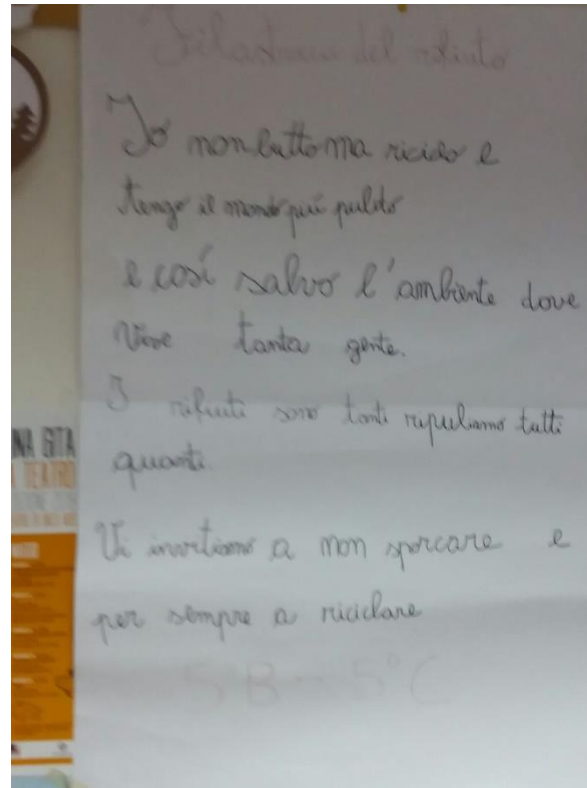 Filastrocca del rifiuto
Io non butto ma riciclo e
tengo il mondo più pulito
e così salvo l'ambiente dove
vive tanta gente.
I rifiuti sono tanti ripuliamo tutti
quanti.
Vi invitiamo a non sporcare e
per sempre a riciclare
5°B - 5°C
NA GITA
A TEATRO